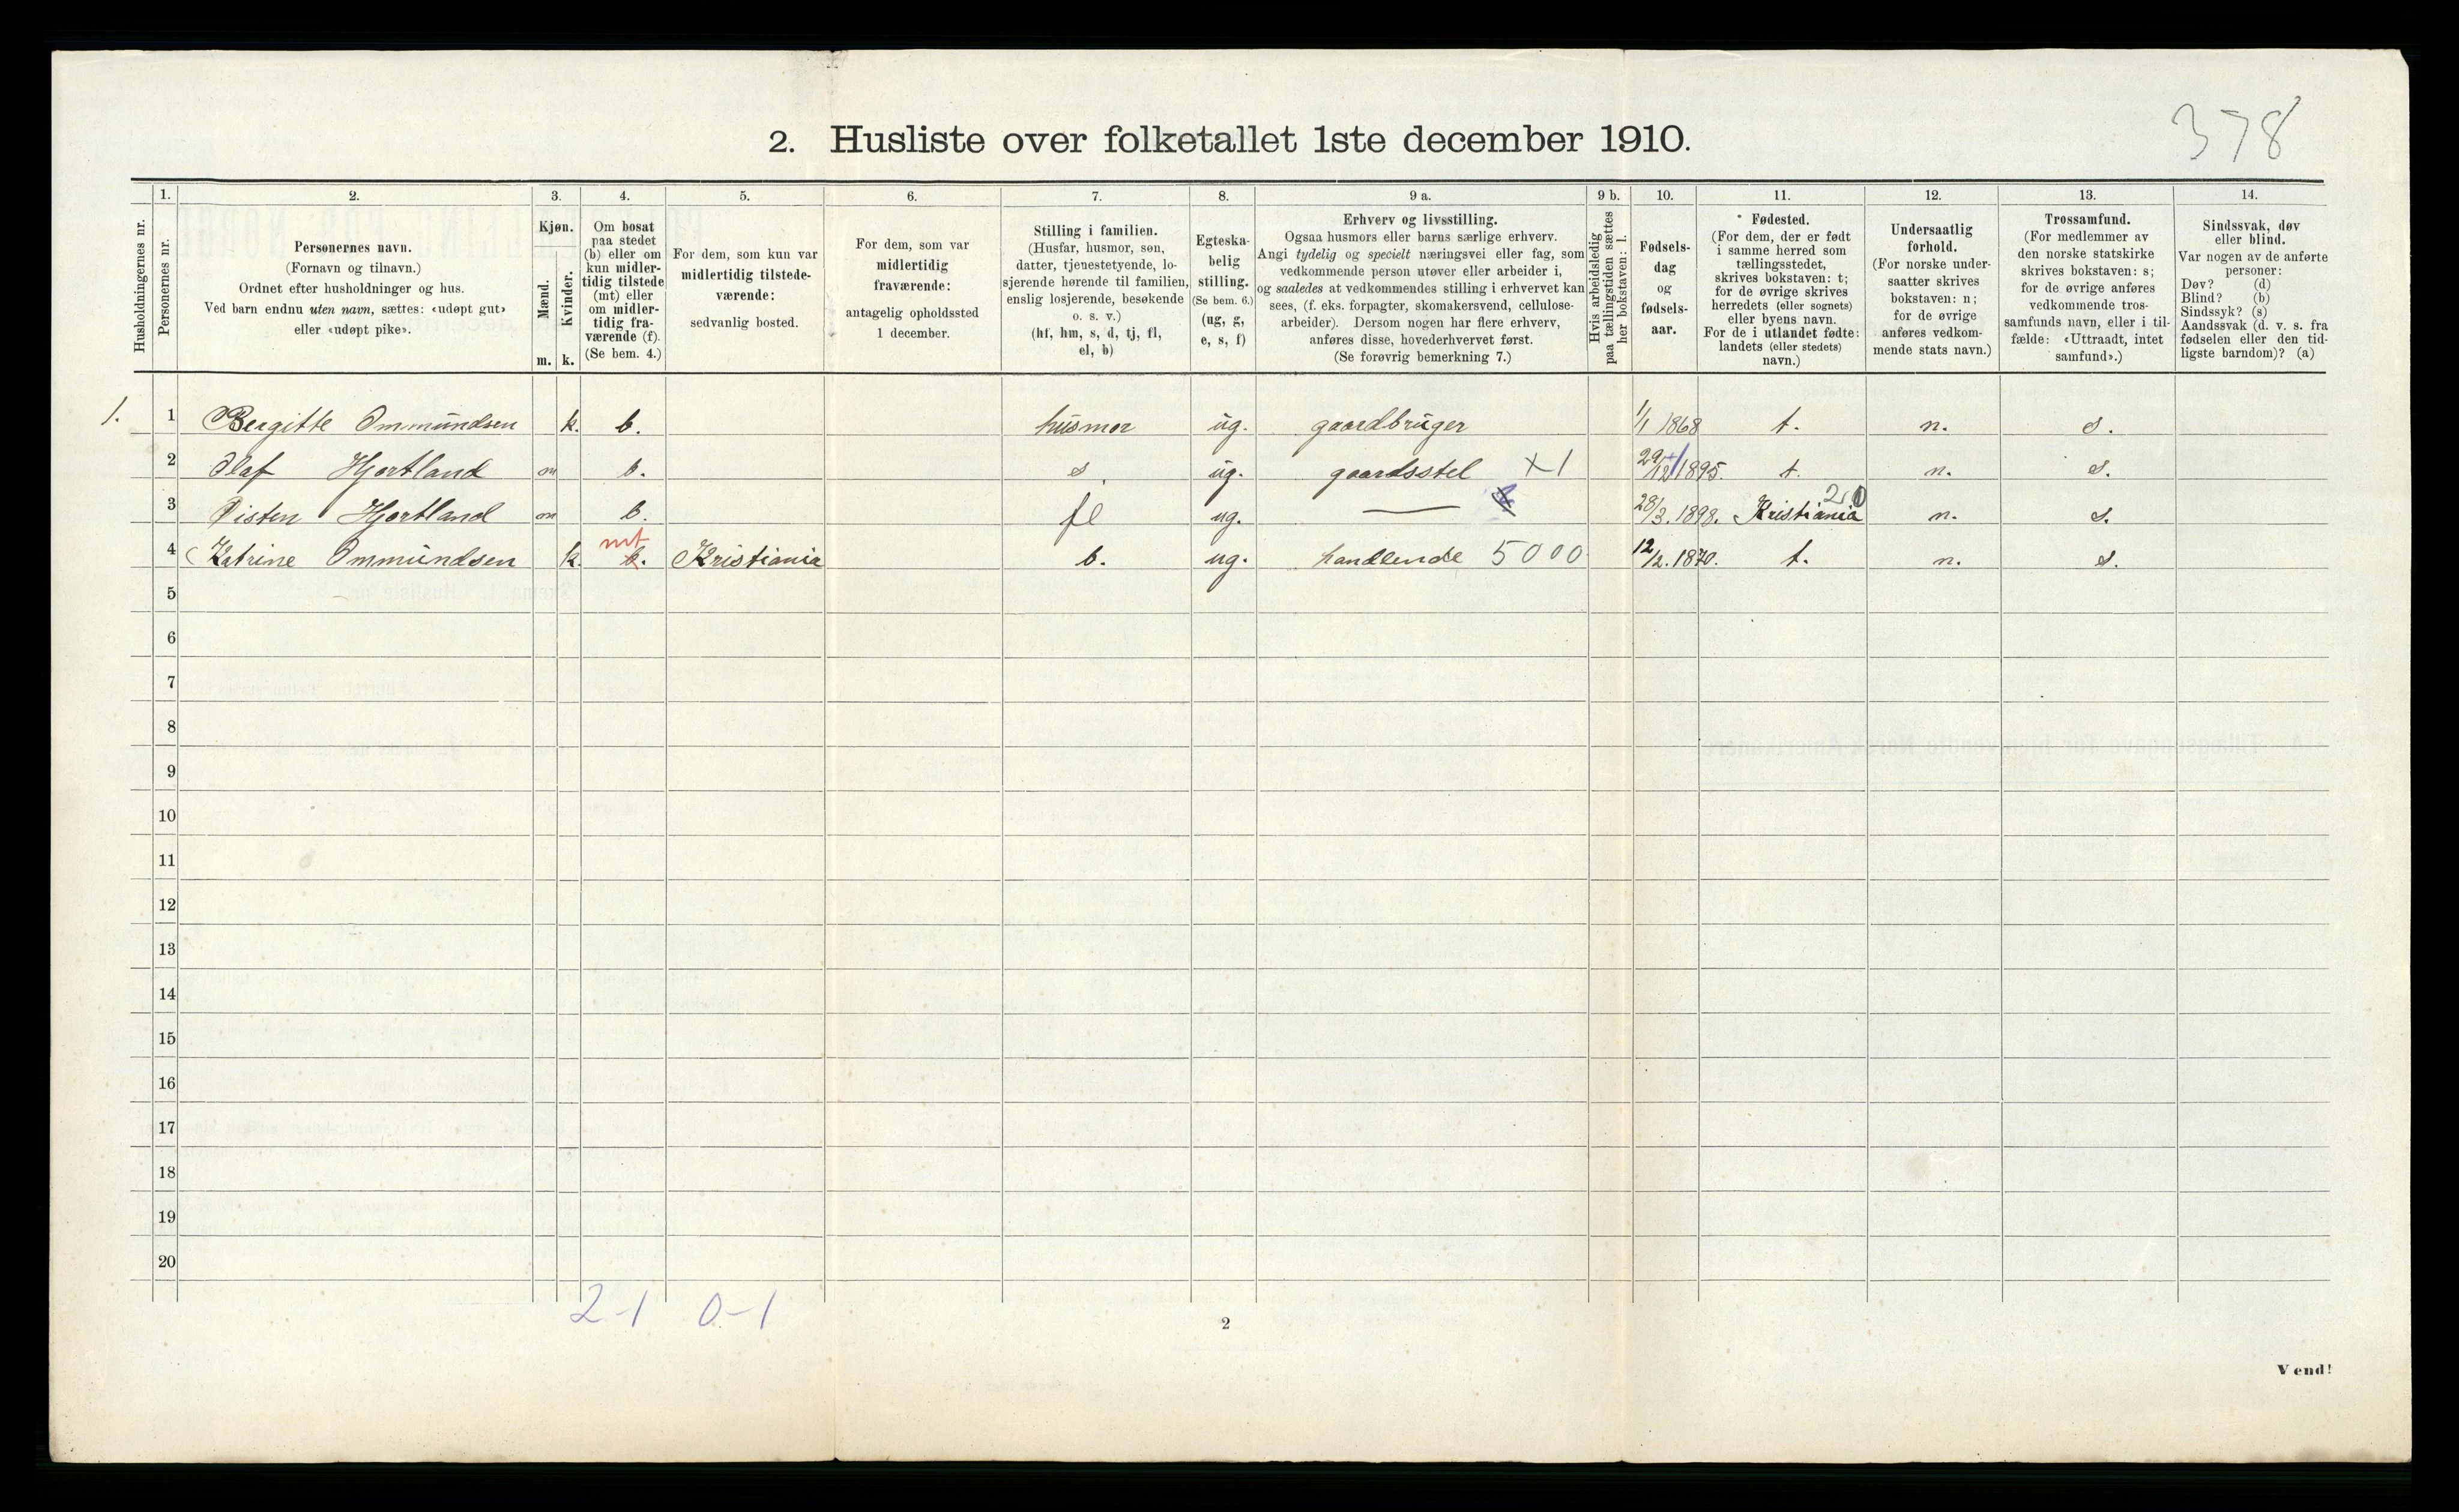 378
2. Husliste over folketallet 1ste december 1910.
Husholdningernes nr.
1.
Personernes nr.
2.
Personernes navn.
(Fornavn og tilnavn.)
Ordnet efter husholdninger og hus.
Ved barn endnu uten navn, sættes: «udøpt gut»
eller «udøpt pike».
3.
Kjøn.
Mænd.
Kvinder.
m. k.
4.
Om bosat
paa stedet
(b) eller om
kun midler-
tidig tilstede
(mt) eller
om midler-
tidig fra-
værende (f).
(Se bem. 4.)
5.
For dem, som kun var
midlertidig tilstede-
værende:
sedvanlig bosted.
6.
For dem, som var
midlertidig
fraværende:
antagelig opholdssted
1 december.
7.
Stilling i familien.
(Husfar, husmor, søn,
datter, tjenestetyende, lo-
sjerende hørende til familien,
enslig losjerende, besøkende
o. s. v.)
(hf, hm, s, d, tj, fl,
el, b)
8.
Egteska-
belig
stilling.
(Se bem. 6.)
(ug, g,
e, s, f)
9 a.
Erhverv og livsstilling.
Ogsaa husmors eller barns særlige erhverv.
Angi tydelig og specielt næringsvei eller fag, som
vedkommende person utøver eller arbeider i,
og saaledes at vedkommendes stilling i erhvervet kan
sees, (f. eks. forpagter, skomakersvend, cellulose-
arbeider). Dersom nogen har flere erhverv,
anføres disse, hovederhvervet først.
(Se forøvrig bemerkning 7.)
9 b.
Hvis arbeidsledig
paa tællingstiden sættes
her bokstaven: l.
10.
Fødsels-
dag
og
fødsels-
aar.
11.
Fødested.
(For dem, der er født
i samme herred som
tællingsstedet,
skrives bokstaven: t;
for de øvrige skrives
herredets (eller sognets)
eller byens navn.
For de i utlandet fødte:
landets (eller stedets)
navn.)
12.
Undersaatlig
forhold.
(For norske under-
saatter skrives
bokstaven: n;
for de øvrige
anføres vedkom-
mende stats navn.)
13.
Trossamfund.
(For medlemmer av
den norske statskirke
skrives bokstaven: s;
for de øvrige anføres
vedkommende tros-
samfunds navn, eller i til-
fælde: «Uttraadt, intet
samfund».)
14.
Sindssvak, døv
eller blind.
Var nogen av de anførte
personer:
Døv? (d)
Blind? (b)
Sindssyk? (s)
Aandssvak (d. v. s. fra
fødselen eller den tid-
ligste barndom)? (a)
1. 1 Bergitte Ommundsen k. b. husmor ug. gaardbruger 1/1 1868 t. n. s.
2 Olaf Hjortland m b. s. ug. gaardsstel X1 29/12 1895. t. n. s.
3 Tisten Hjortland m b. fl ug. — 28/3. 1898. Kristiania n. s.
mt
4 Katrine Ommundsen k. b. Kristiania b. ug. handlende 5000 12/2. 1870. t. n. s.
5
6
7
8
9
10
11
12
13
14
15
16
17
18
19
20
2-1 0-1
2
Vend!